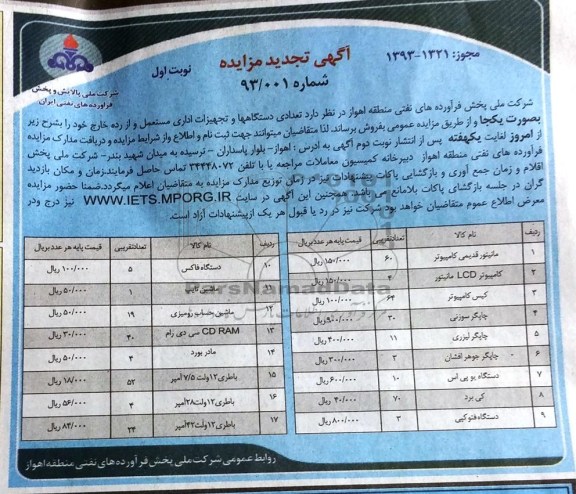 مجوز: ۱۳۲۱-۱۳۹۳
آگهی تجدید مزایده
نوبت اول
شماره ۹۳/۰۰۱
شرکت ملی پالایش و پخش
فرآورده های نفتی ایران
شرکت ملی پخش فرآورده های نفتی منطقه اهواز در نظر دارد تعدادی دستگاهها و تجهیزات اداری مستعمل و از رده خارج خود را بشرح زیر
بصورت یکجا و از طریق مزایده عمومی بفروش برساند.لذا متقاضیان میتوانند جهت ثبت نام و اطلاع واز شرایط مزایده و دریافت مدارک مزایده
از امروز لغایت یکهفته پس از انتشار نوبت دوم آگهی به آدرس : اهواز- بلوار پاسداران - نرسیده به میدان شهید بندر- شرکت ملی پخش
فرآورده های نفتی منطقه اهواز دبیرخانه کمیسیون معاملات مراجعه یا با تلفن ۳۴۴۴۸۰۷۲ تماس حاصل فرمایند.زمان و مکان بازدید
اقلام و زمان جمع آوری و بازگشایی پاکات پیشنهادات نیز در زمان توزیع مدارک مزایده به متقاضیان اعلام میگردد.ضمنا حضور مزایده
گران در جلسه بازگشای پاکات بلامانع می باشد. همچنین این آگهی در سایت WWW.IETS.MPORG.IR نیز درج ودر
معرض اطلاع عموم متقاضیان خواهد بود.شرکت نیز در رد یا قبول هر یک ازپیشنهادات آزاد است.
ردیف نام کالا تعدادتقریبی قیمت پایه هر عدد بریال
۱ مانیتور قدیمی کامپیوتر ۶۰ ۱۵۰/۰۰۰ ریال
۲ کامپیوتر LCD مانیتور ۴ ۱۵۰/۰۰۰ ریال
۳ کیس کامپیوتر ۶۴ ۱۰۰/۰۰۰ ریال
۴ چاپگر سوزنی ۳۰ ریال
۵ چاپگر لیزری ۱۱ ۴۰۰/۰۰۰ ریال
۶ چاپگر جوهر افشان ۲ ۳۰۰/۰۰۰ ریال
۷ دستگاه یو پی اس ۱۰ ۶۰۰/۰۰۰ ریال
۸ کی برد ۷۰ ۴۰/۰۰۰ ریال
۹ دستگاه فتوکپی ۳ ۸۰۰/۰۰۰ ریال
ردیف نام کالا تعدادتقریبی قیمت پایه هر عدد بریال
۱۰ دستگاه فاکس ۵ ۱۰۰/۰۰۰ ریال
۱۱ ماشین تایپ ۱ ۵۰/۰۰۰ ریال
۱۲ ماشین حساب رومیزی ۱۹ ۵۰/۰۰۰ ریال
۱۳ CD RAM سی دی رام ۴۰ ۳۰/۰۰۰ ریال
۱۴ مادر بورد ۴ ۵۰/۰۰۰ ریال
۱۵ باطری۱۲ولت ۷/۵ آمپر ۵۲ ۱۸/۰۰۰ ریال
۱۶ باطری۱۲ولت ۲۸آمپر ۴ ۵۶/۰۰۰ ریال
۱۷ باطری۱۲ولت۴۲آمپر ۲۴ ۸۴/۰۰۰ ریال
روابط عمومی شرکت ملی پخش فرآورده های نفتی منطقه اهواز